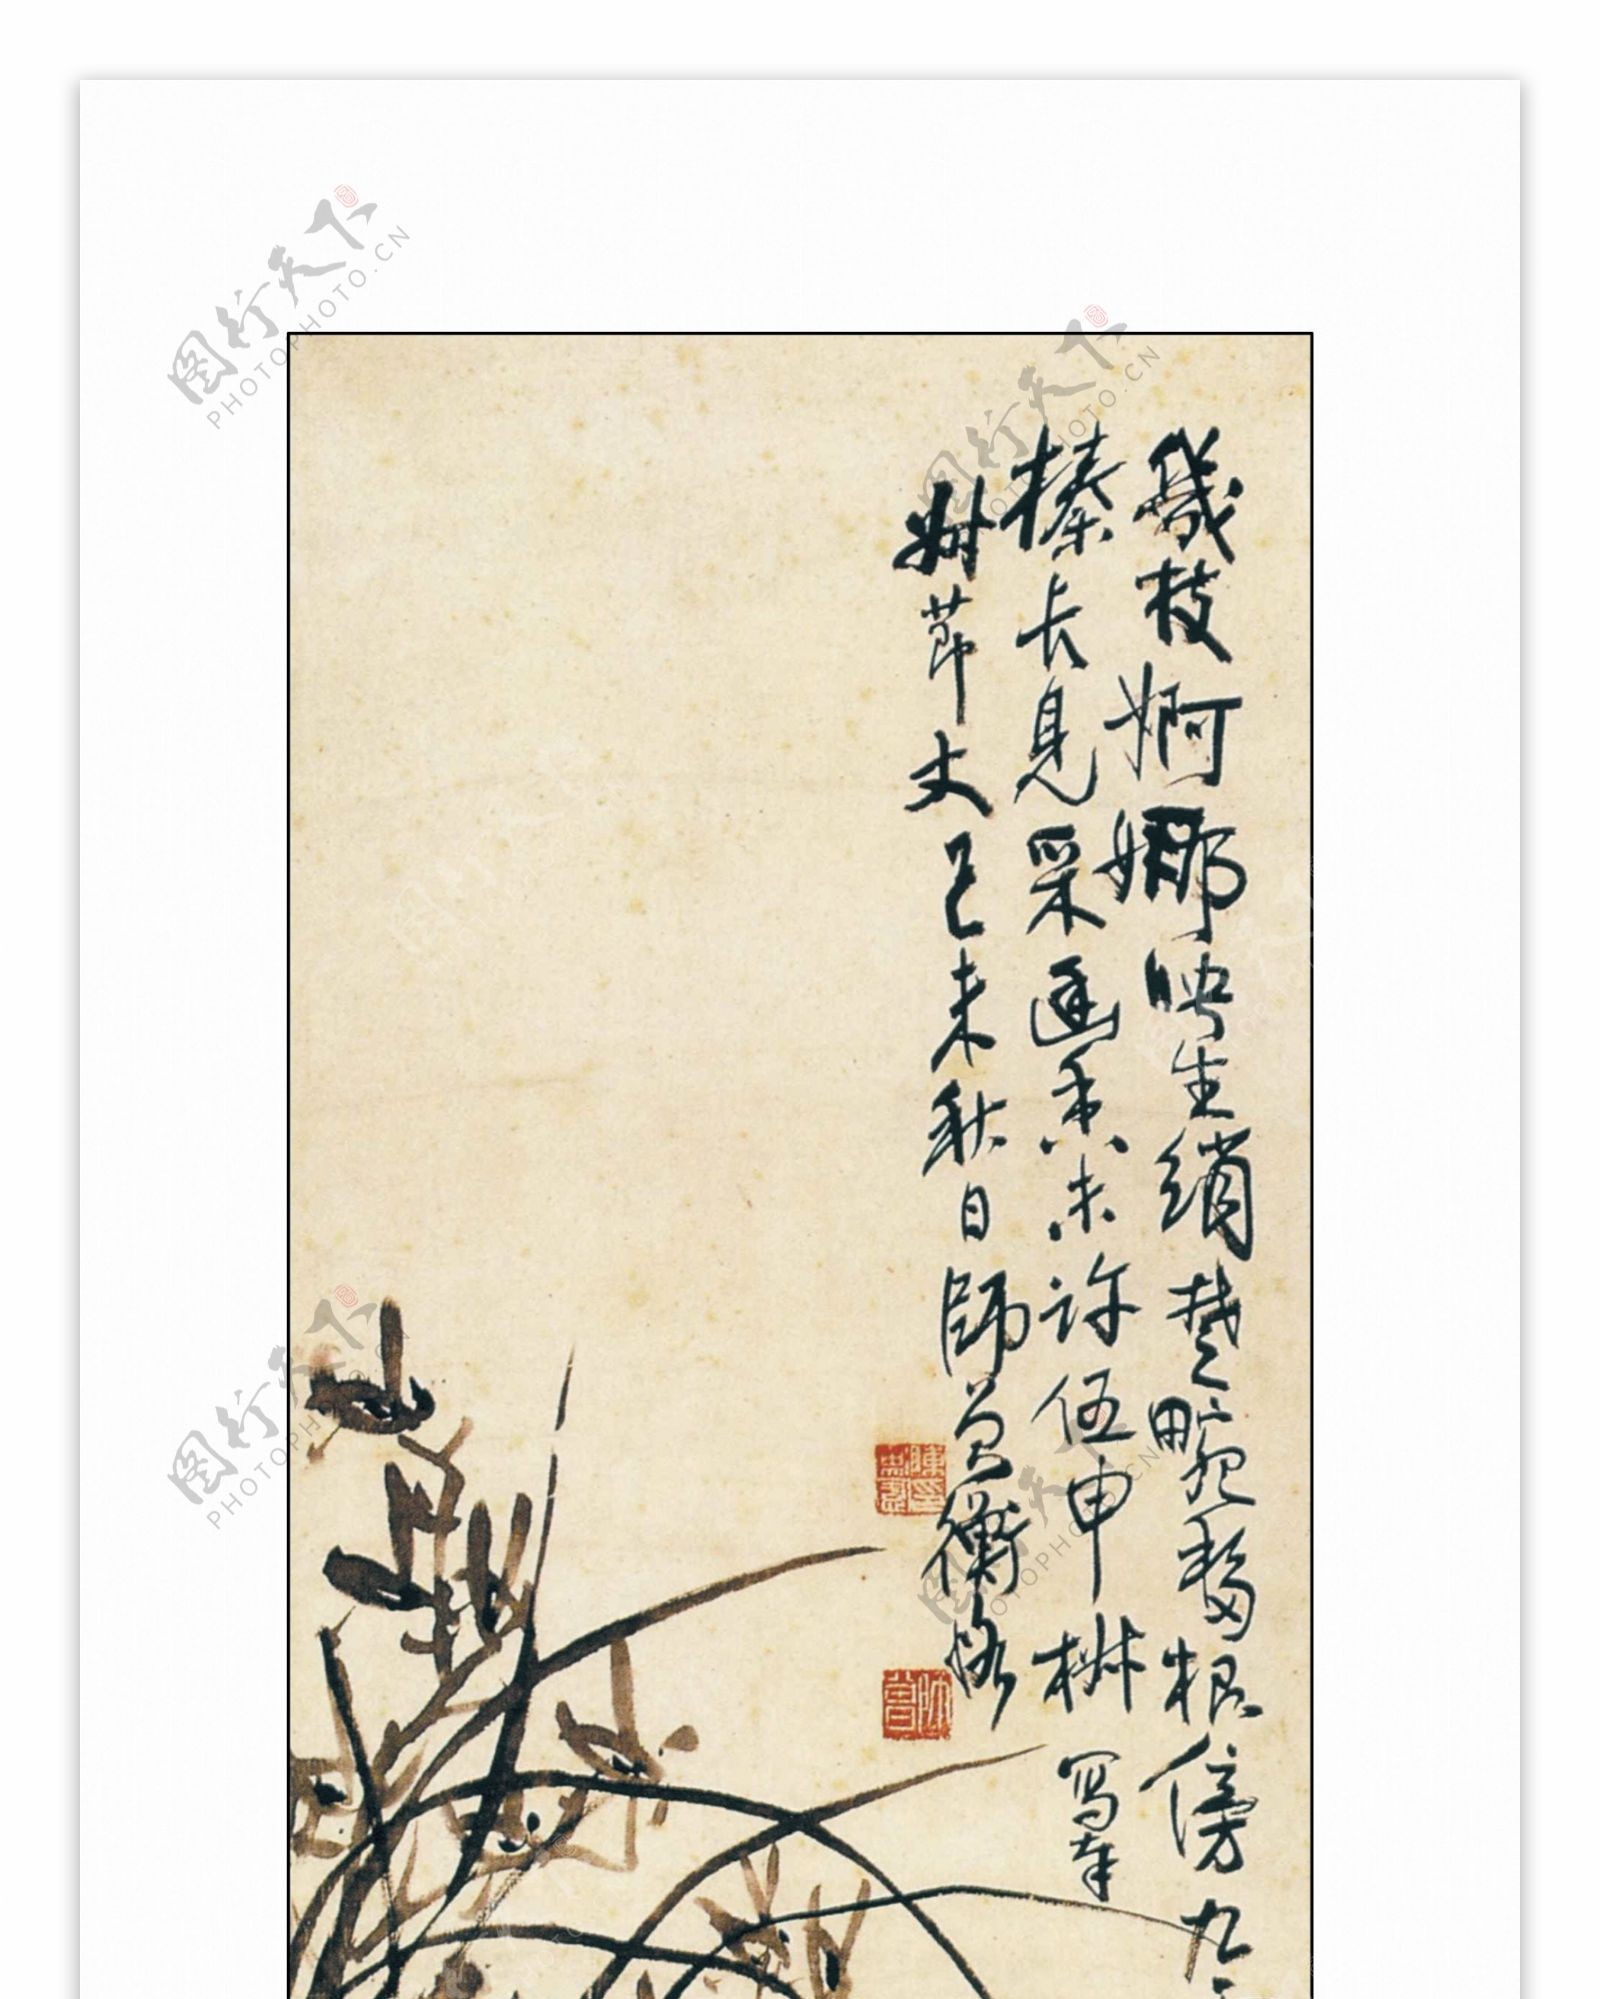 幾枝婀娜映生綃楚畹移根傍九
榛長見采遥香未許伍申椒 寫奉
叔節丈己未秋日師曾衡恪
图行天下
PHOTOPHOTO.CN
图行天下
PHOTOPHOTO.CN
图行天下
PHOTOPHOTO.CN
图行天下
PHOTOPHOTO.CN